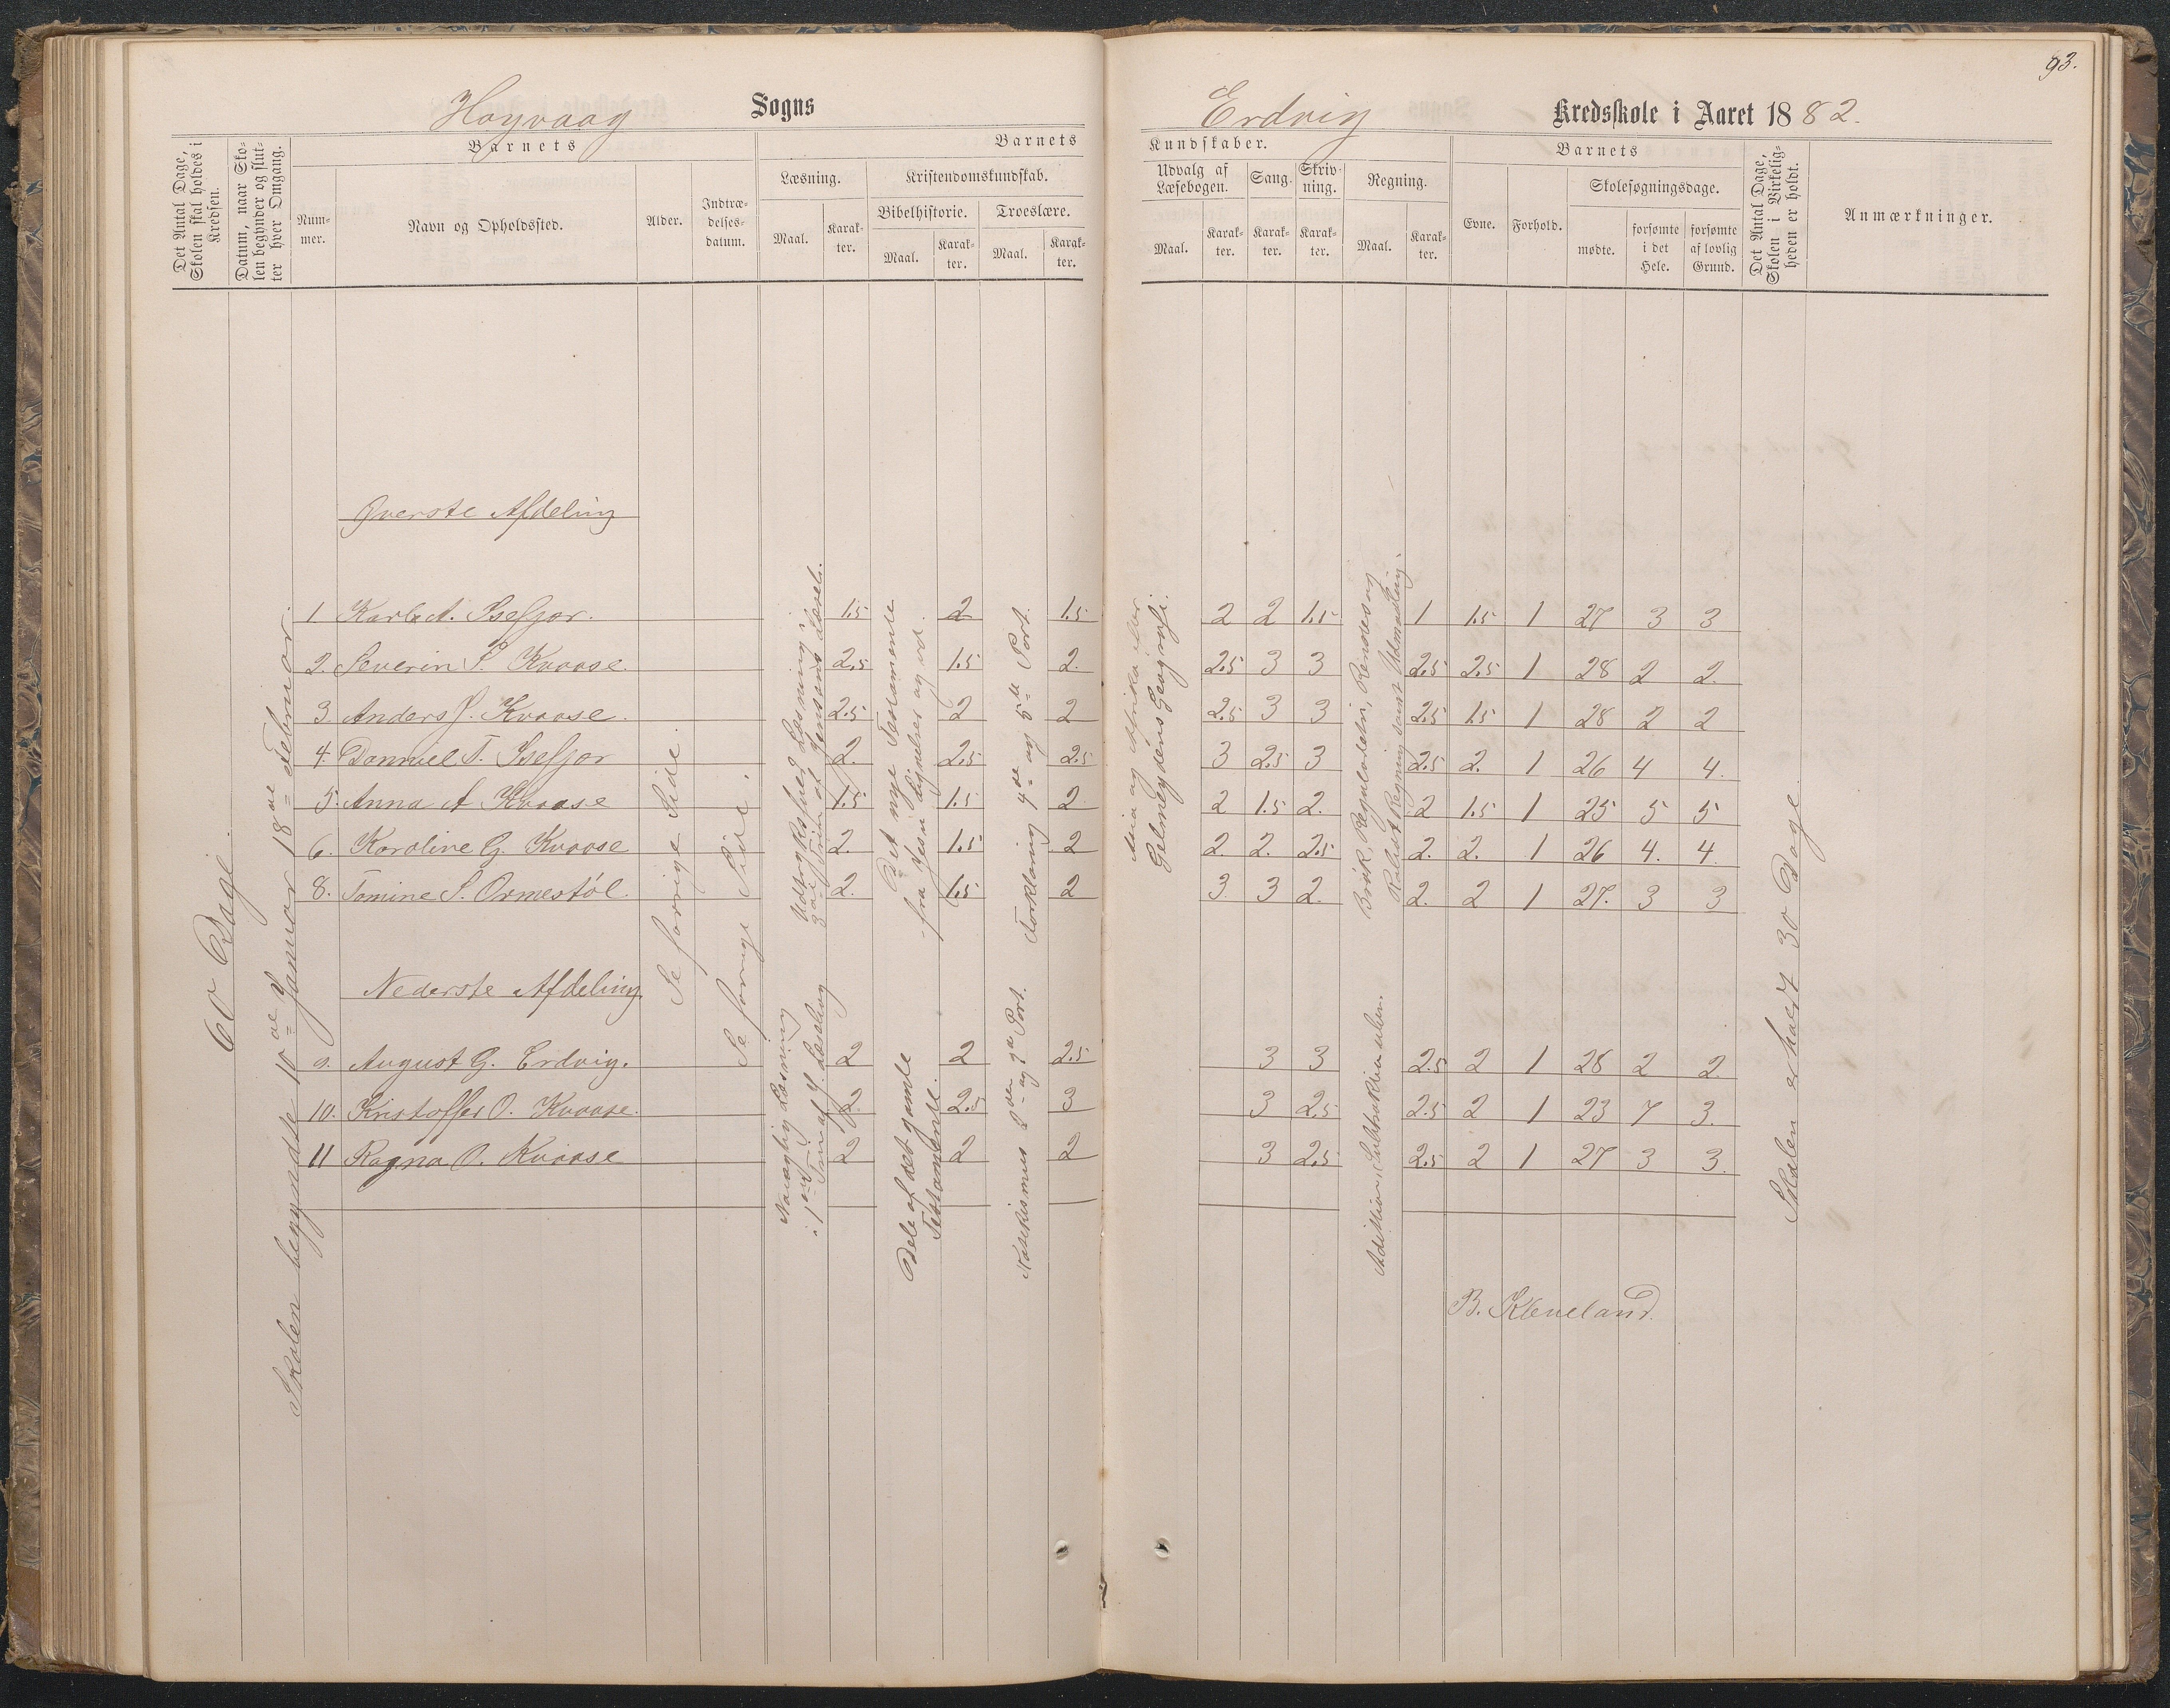 93.
Høyvaag Sogns Erdvig Kredsskole i Aaret 1882.
Det Antal Dage, Skolen skal holdes i Kredsen.
Datum, naar Skolen begynder og slutter hver Omgang.
Barnets
Nummer.
Navn og Opholdssted.
Alder.
Indtrædelsesdatum.
Barnets Kundskaber.
Læsning.
Maal.
Karakter.
Kristendomskundskab.
Bibelhistorie.
Maal.
Karakter.
Troeslære.
Maal.
Karakter.
Udvalg af Læsebogen.
Maal.
Karakter.
Sang.
Karakter.
Skrivning.
Karakter.
Regning.
Maal.
Karakter.
Barnets
Evne.
Forhold.
Skolesøgningsdage.
mødte.
forsømte i det Hele.
forsømte af lovlig Grund.
Det Antal Dage, Skolen i Virkeligheden er holdt.
Anmærkninger.
60 Dage
Skolen begyndte 10de Januar 18de Februar.
Øverste Afdeling
Se forrige Side.
Se forrige Side.
Udtryksfuld Læsning i
3die Trin af Jensens Læseb.
Det nye Testamente
fra Jesu Lignelser og ud.
Forklaring 4de og 5te Part.
Asia og Afrika efter
Gelmeydens Geografi.
Brøk, Reguladetri, Rentes og
Rabat Regning samt Udmaaling
1. Karl A. Isefjær. 1.5 2 1.5 2 2 1.5 1 1.5 1 27 3 3
2. Severin S. Kvaase. 2.5 1.5 2. 2.5 3 3 2.5 2.5 1 28 2 2.
3. Anders J. Kvaase. 2.5 2 2 2.5 3 3 2.5 1.5 1 28 2 2
4. Danuel T. Isefjær 2. 2.5 2.5 3 2.5 3 2.5 2. 1 26 4 4.
5. Anna A Kvaase 1.5 1.5 2 2 1.5 2. 2 1.5 1 25 5 5
6. Karoline G. Kvaase 2. 1.5 2 2. 2. 2.5 2. 2. 1 26 4. 4.
8. Tomine S. Ormestøl. 2. 1.5 2 3. 3 2. 2. 2 1 27. 3 3
Nederste Afdeling
Nøiagtig Læsning
i 1ste Trin af J. Læsebog
Dele af det gamle
Testamente.
Katekismus
Part.
Addition, Subtraktion
9. August G. Erdvig. 2 2 2.5 3 3 2.5 2 1 28 2 2.
10. Kristoffer O. Kvaase. 2. 2.5 3 3 2.5 2.5 2 1 23 7 3.
11 Ragna O. Kvaase 2 2 2 3 2.5 2.5 2 1 27 3 3.
Skolen er holdt 30 Dage.
B. Kleveland.